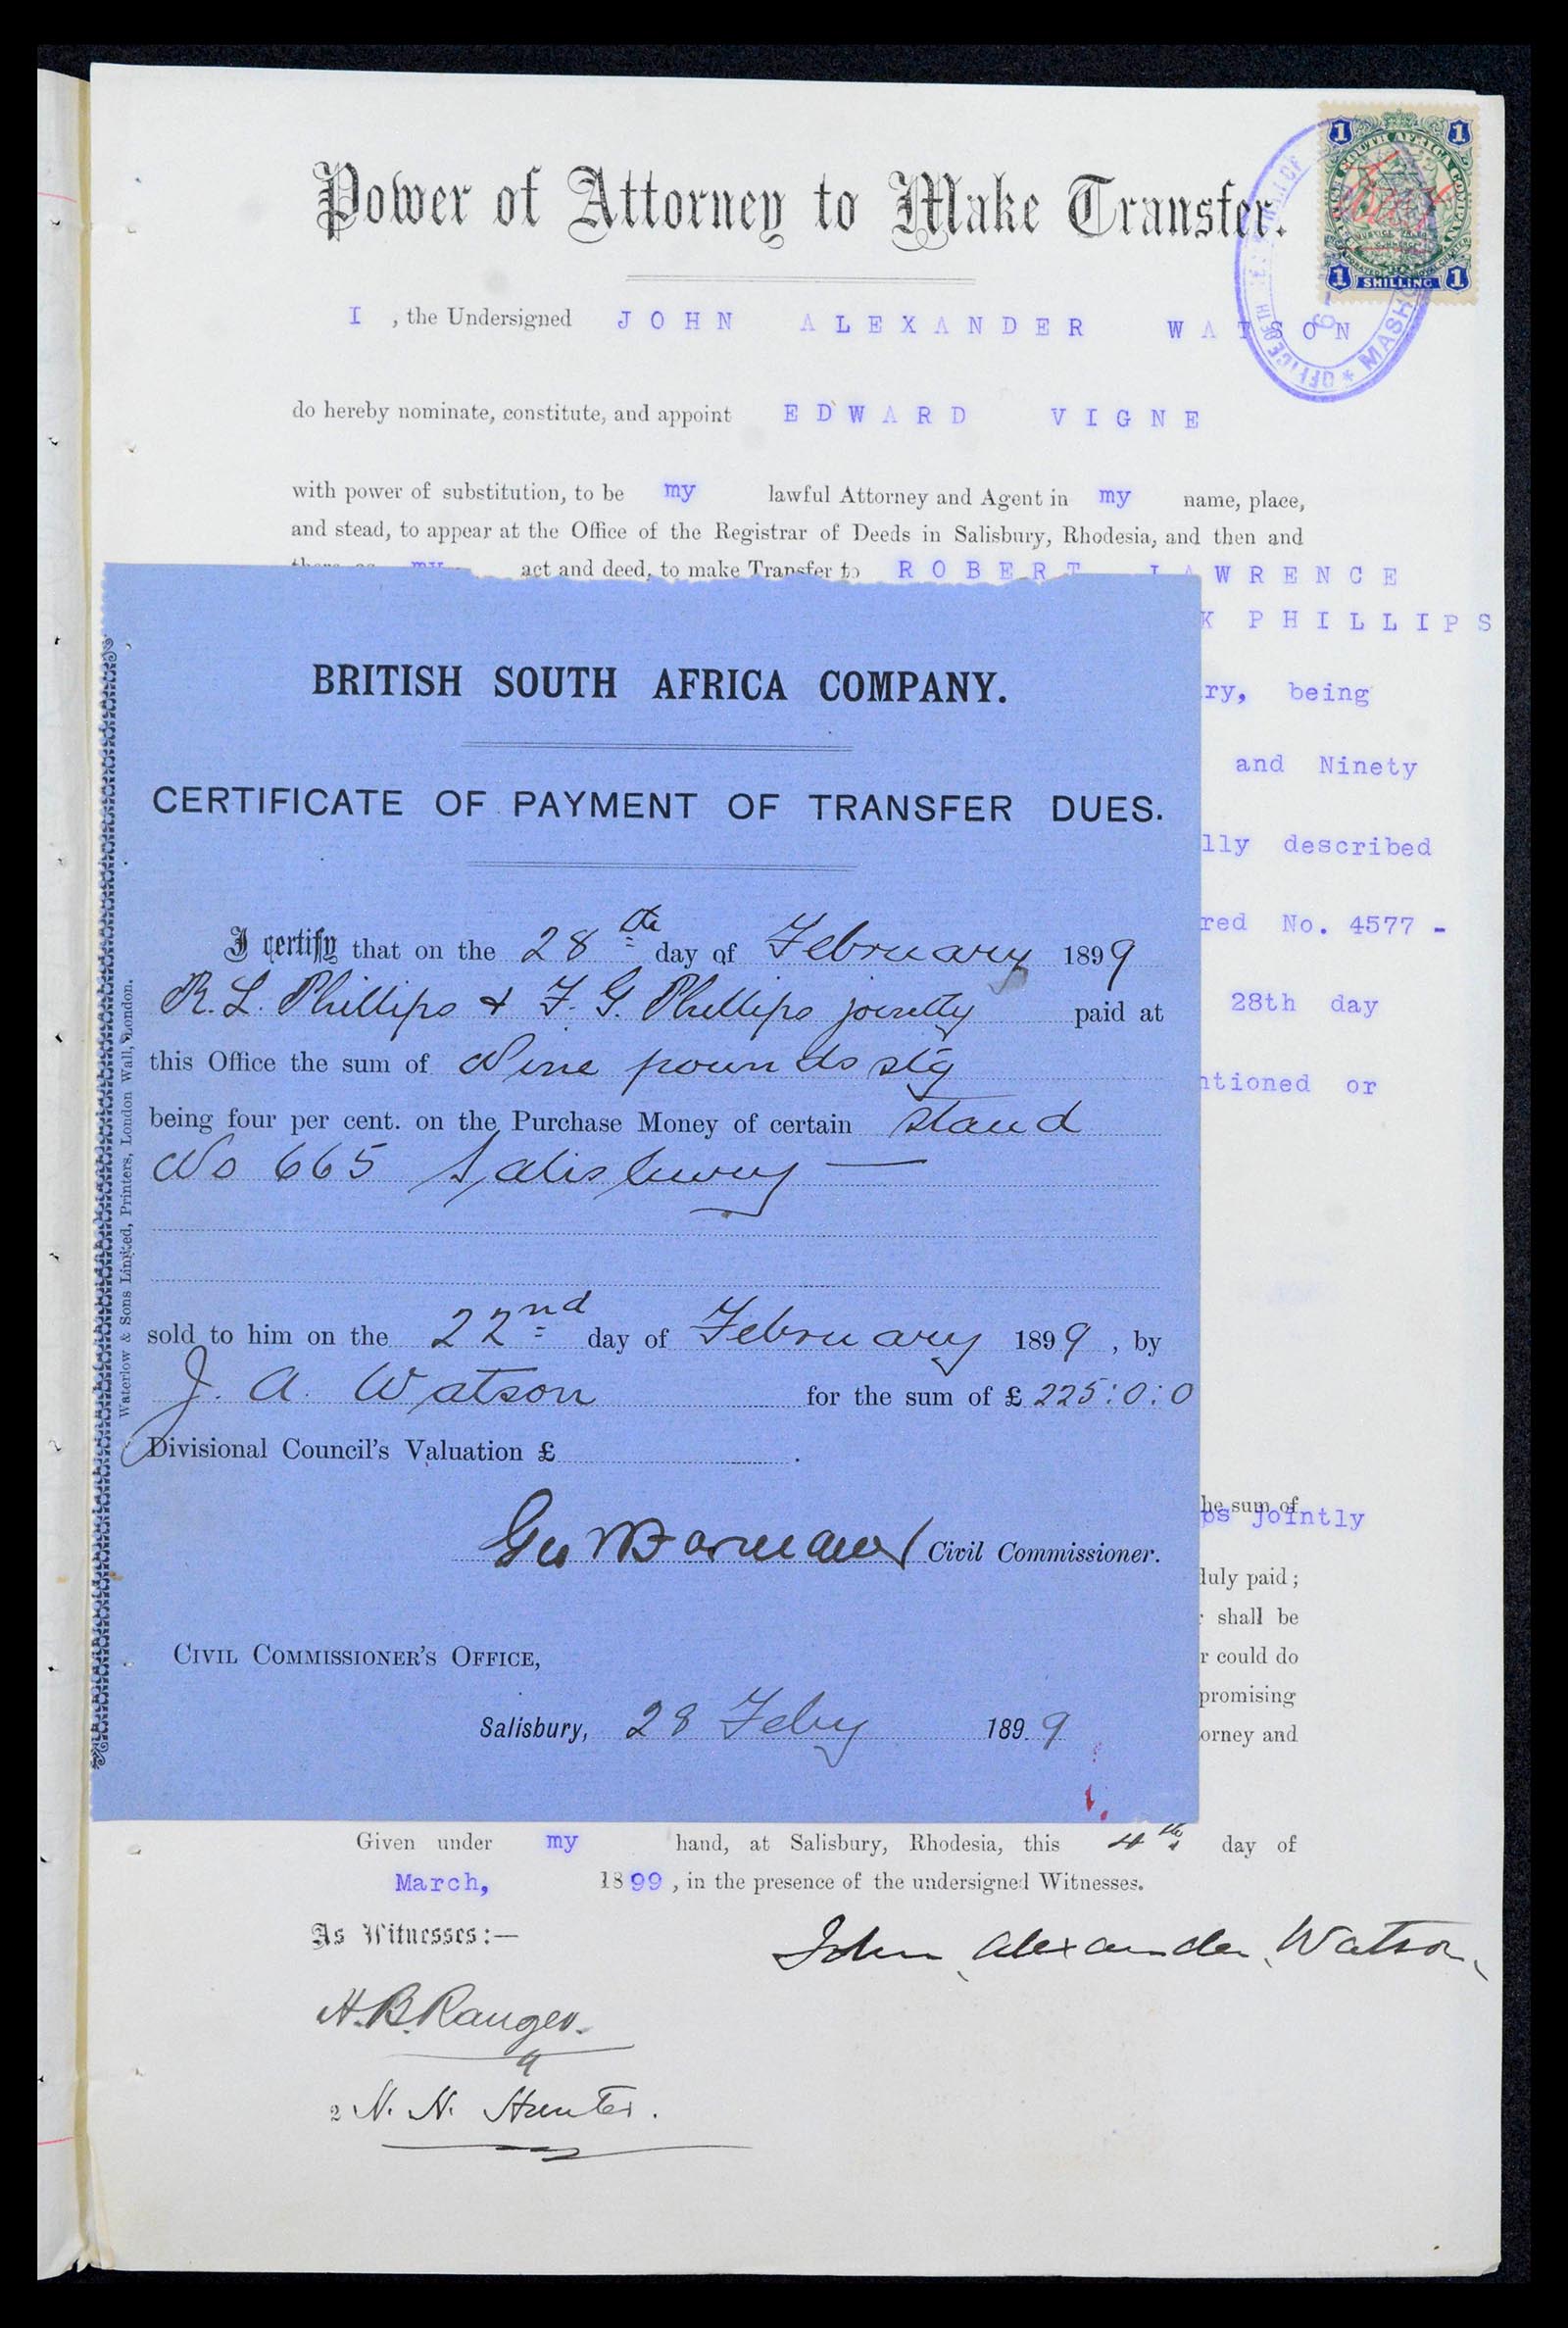 Power of Attorney to Make Transfer.
1 1
1 SHILLING 1
I , the Undersigned JOHN ALEXANDER WATSON
do hereby nominate, constitute, and appoint EDWARD VIGNE
with power of substitution, to be my lawful Attorney and Agent in my name, place,
and stead, to appear at the Office of the Registrar of Deeds in Salisbury, Rhodesia, and then and
there as my act and deed, to make Transfer to ROBERT LAWRENCE
K PHILLIPS
ry, being
and Ninety
lly described
red No. 4577 -
28th day
ntioned or
BRITISH SOUTH AFRICA COMPANY.
CERTIFICATE OF PAYMENT OF TRANSFER DUES.
I certify that on the 28th day of February 1899
R. L. Phillips & F. G. Phillips jointly paid at
this Office the sum of Nine pounds stg
being four per cent. on the Purchase Money of certain stand
No 665 Salisbury —
sold to him on the 22nd day of February 1899, by
J. A. Watson for the sum of £ 225:0:0
Divisional Council's Valuation £ .
Civil Commissioner.
CIVIL COMMISSIONER'S OFFICE,
Salisbury, 28 Feby 1899
Waterlow & Sons Limited, Printers, London Wall, London.
he sum of
ps jointly
duly paid ;
shall be
r could do
promising
orney and
Given under my hand, at Salisbury, Rhodesia, this 4th day of
March, 1899, in the presence of the undersigned Witnesses.
As Witnesses:—
John Alexander Watson
H. B. Ranger.
2 N. N. Hunter.